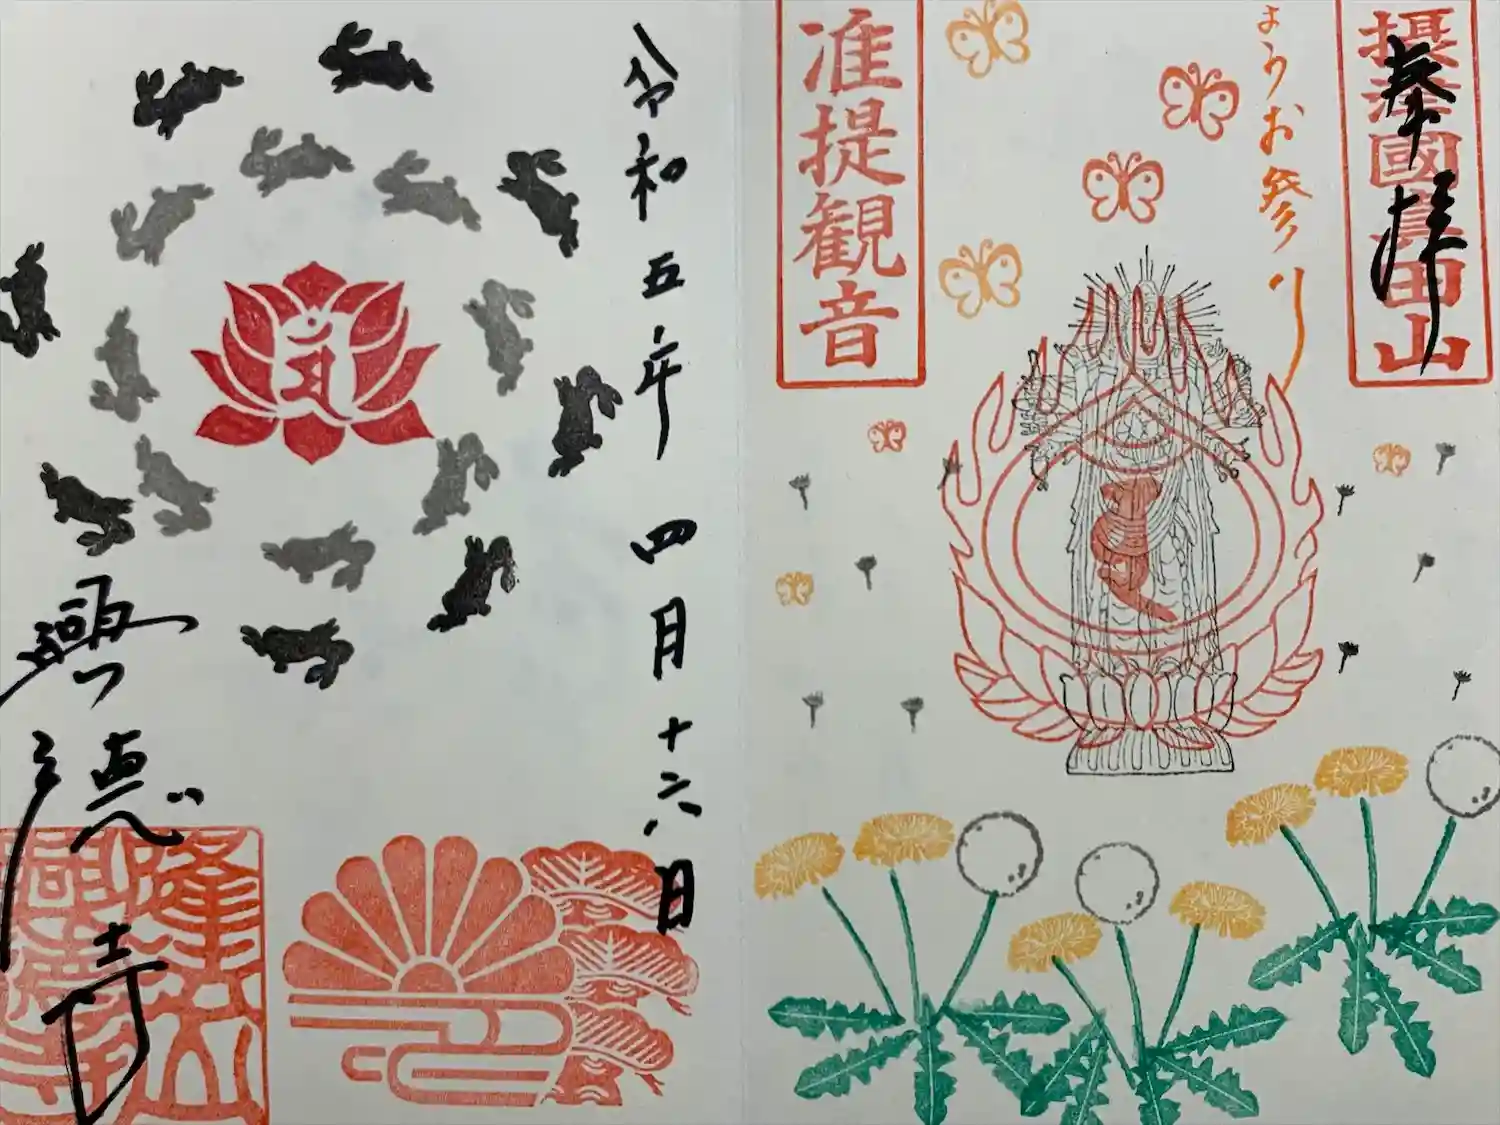 摂津國真田山
奉拝
ようお参り
准提観音
令和五年四月十六日
興徳寺